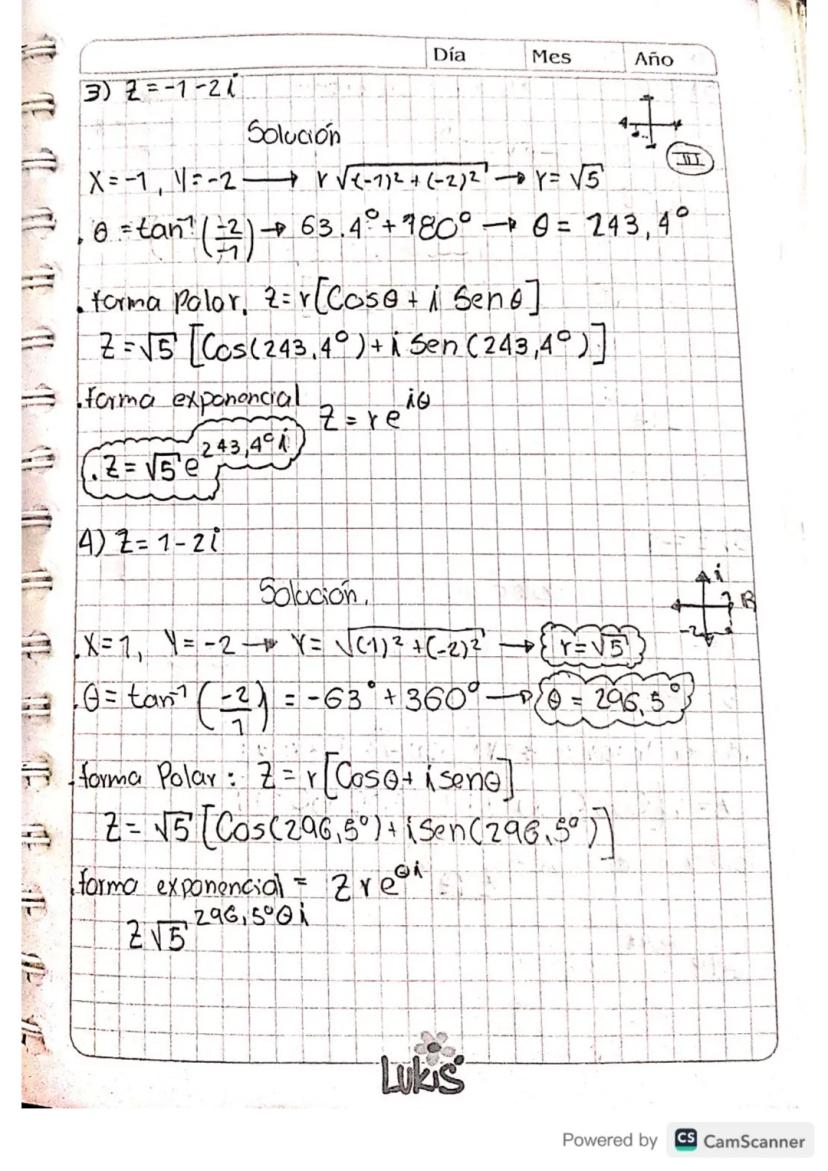 Día Mes Año
3) Z = -1 - 2i
Solución
III
X = -1, Y = -2 → r √(-1)² + (-2)² → r = √5
. θ = tan⁻¹ (-2/-1) → 63.4° + 180° → θ = 243,4°
. forma Polar. Z = r [Cosθ + i Senθ]
Z = √5 [Cos(243,4°) + i Sen(243,4°)]
. forma exponencial Z = r e^iθ
. Z = √5 e^243,4° i
4) Z = 1 - 2i
Solución.
i
-2
. X = 1, Y = -2 → r = √(1)² + (-2)² → r = √5
. θ = tan⁻¹ (-2/1) = -63° + 360° → θ = 296,5°
. forma Polar: Z = r [Cosθ + i senθ]
Z = √5 [Cos(296,5°) + i Sen(296,5°)]
. forma exponencial = Z r e^θi
Z √5^296,5°θi
Lukis
Powered by CS CamScanner